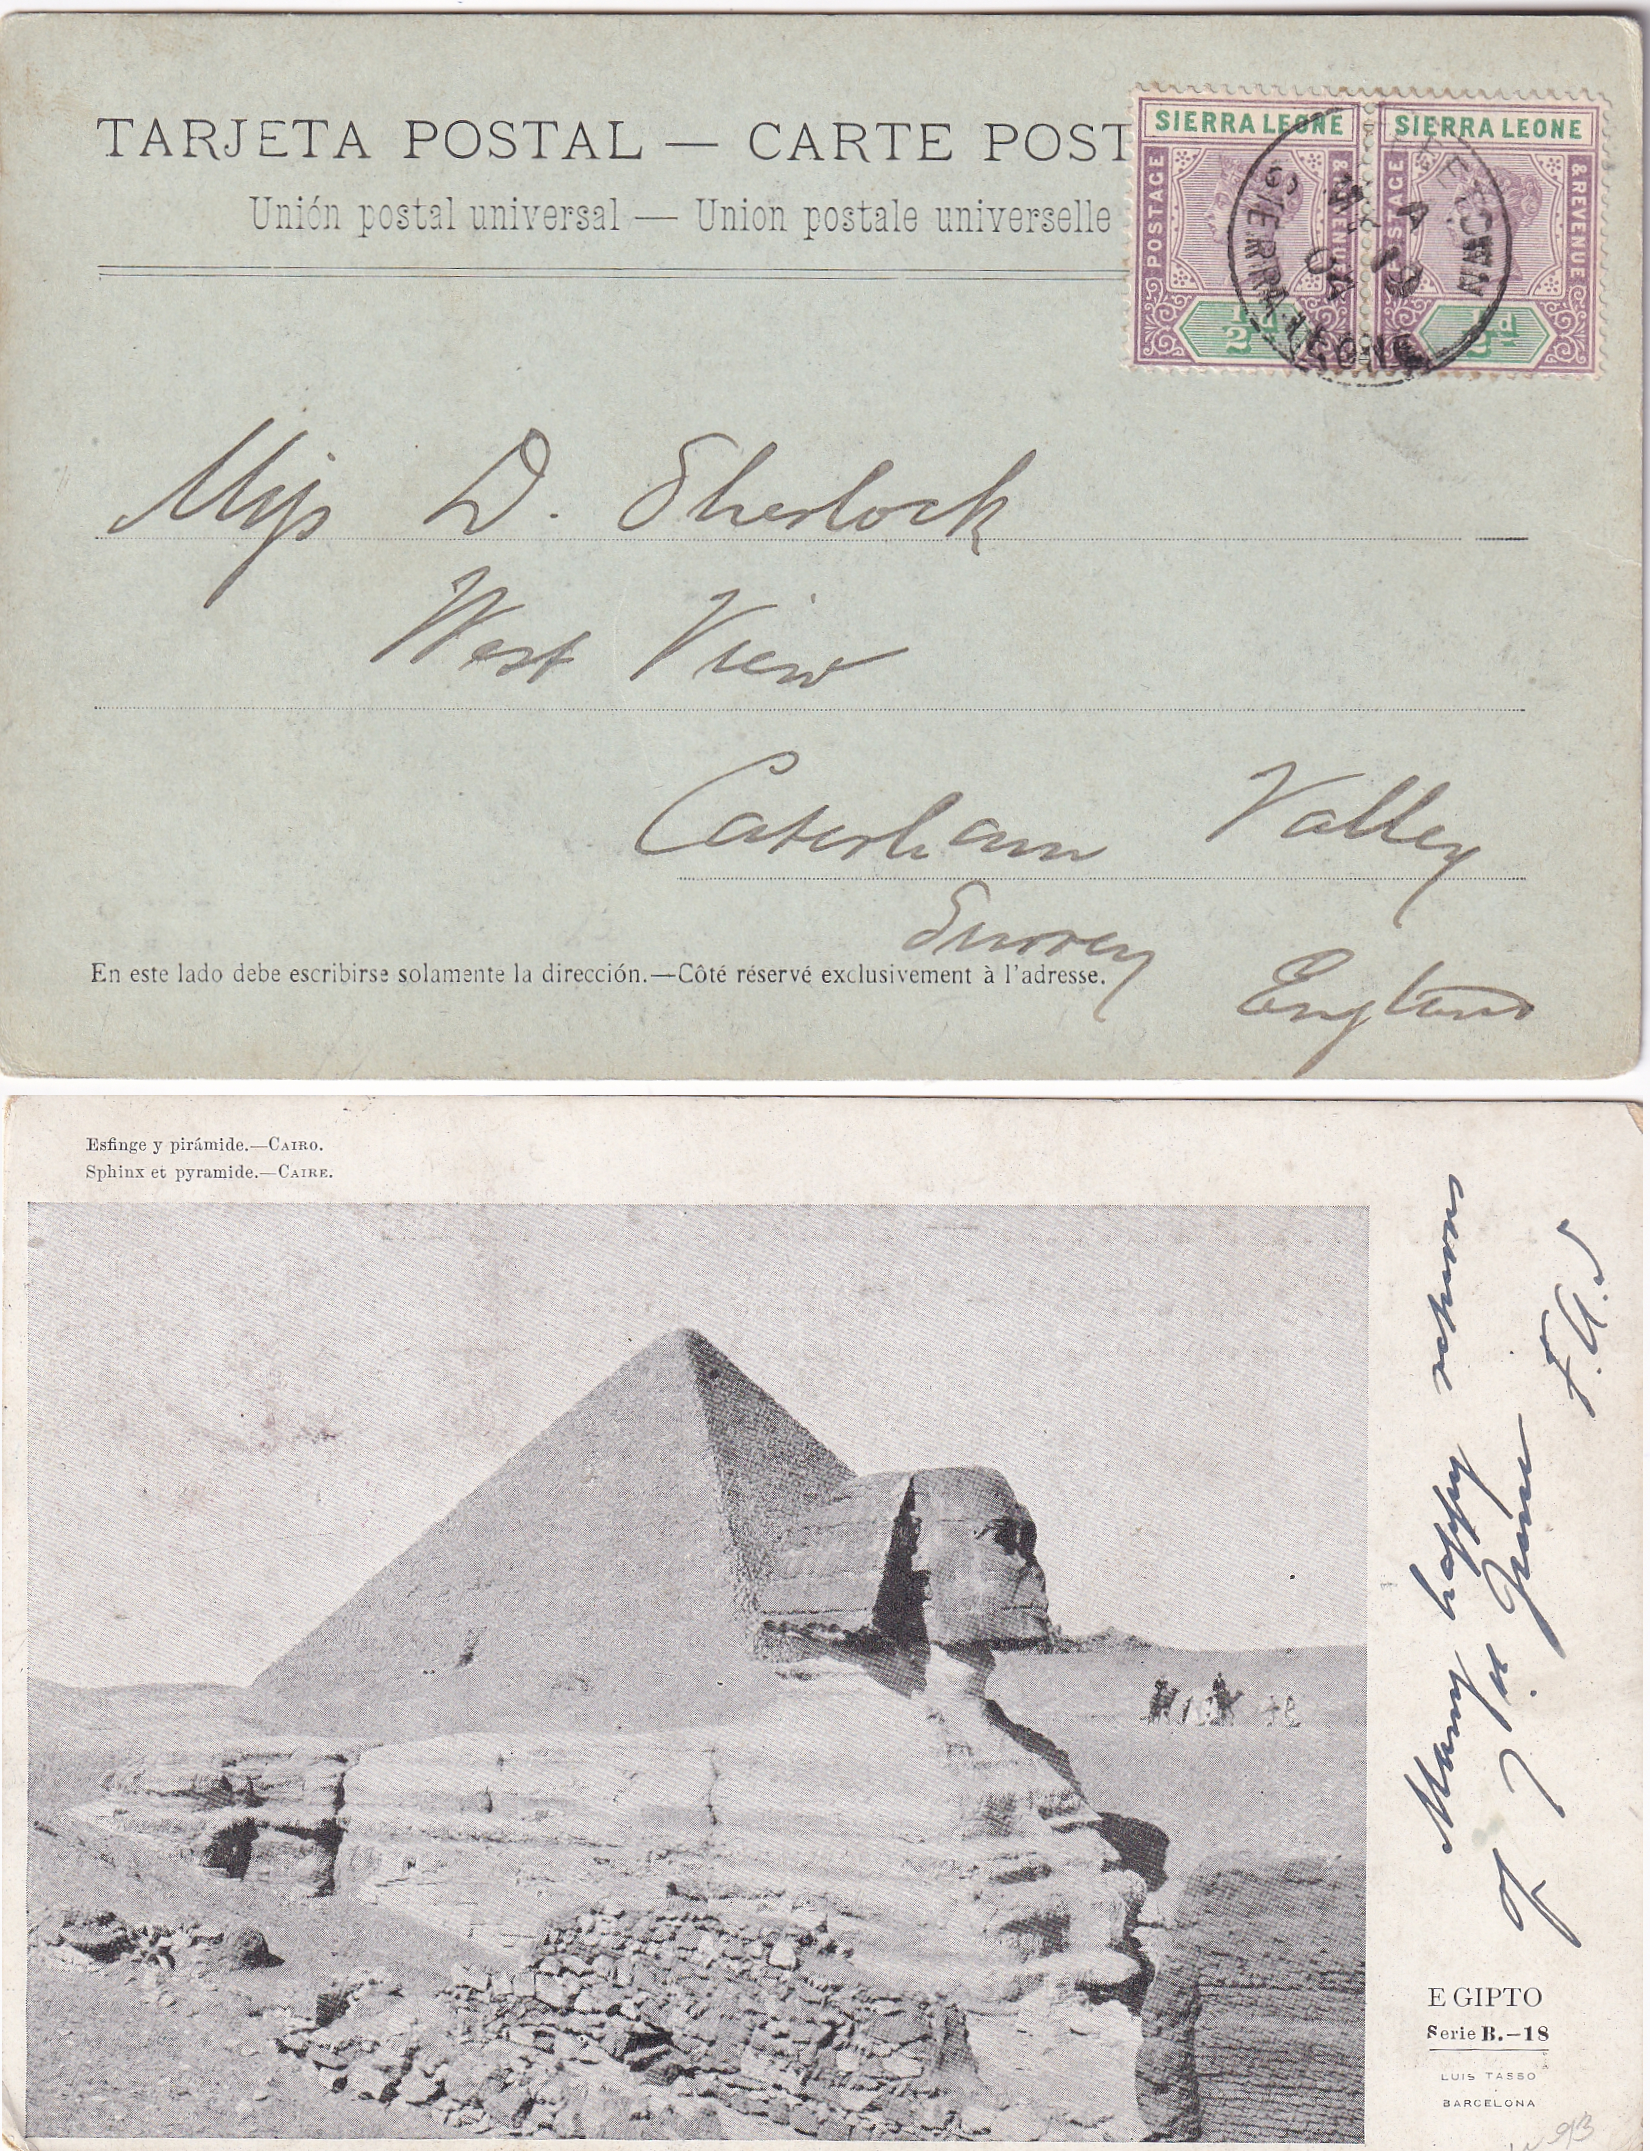 TARJETA POSTAL — CARTE POST
Unión postal universal — Union postale universelle
SIERRA LEONE
POSTAGE
& REVENUE
½d
SIERRA LEONE
POSTAGE
& REVENUE
½d
FREETOWN
A
MY 12
04
SIERRA LEONE
Miss D. Sherlock
West View
Caterham Valley
Surrey
England
En este lado debe escribirse solamente la dirección.—Côté réservé exclusivement à l'adresse.
Esfinge y pirámide.—CAIRO.
Sphinx et pyramide.—CAIRE.
Many happy returns
of 7th June
F.A.S
EGIPTO
Serie B.-18
LUIS TASSO
BARCELONA
93